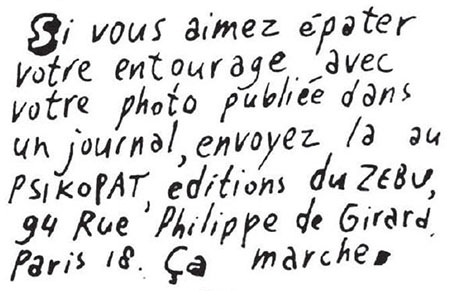 Si vous aimez épater
votre entourage avec
votre photo publiée dans
un journal, envoyez la au
PSIKOPAT, editions du ZEBU,
94 Rue Philippe de Girard.
Paris 18. Ça marche.